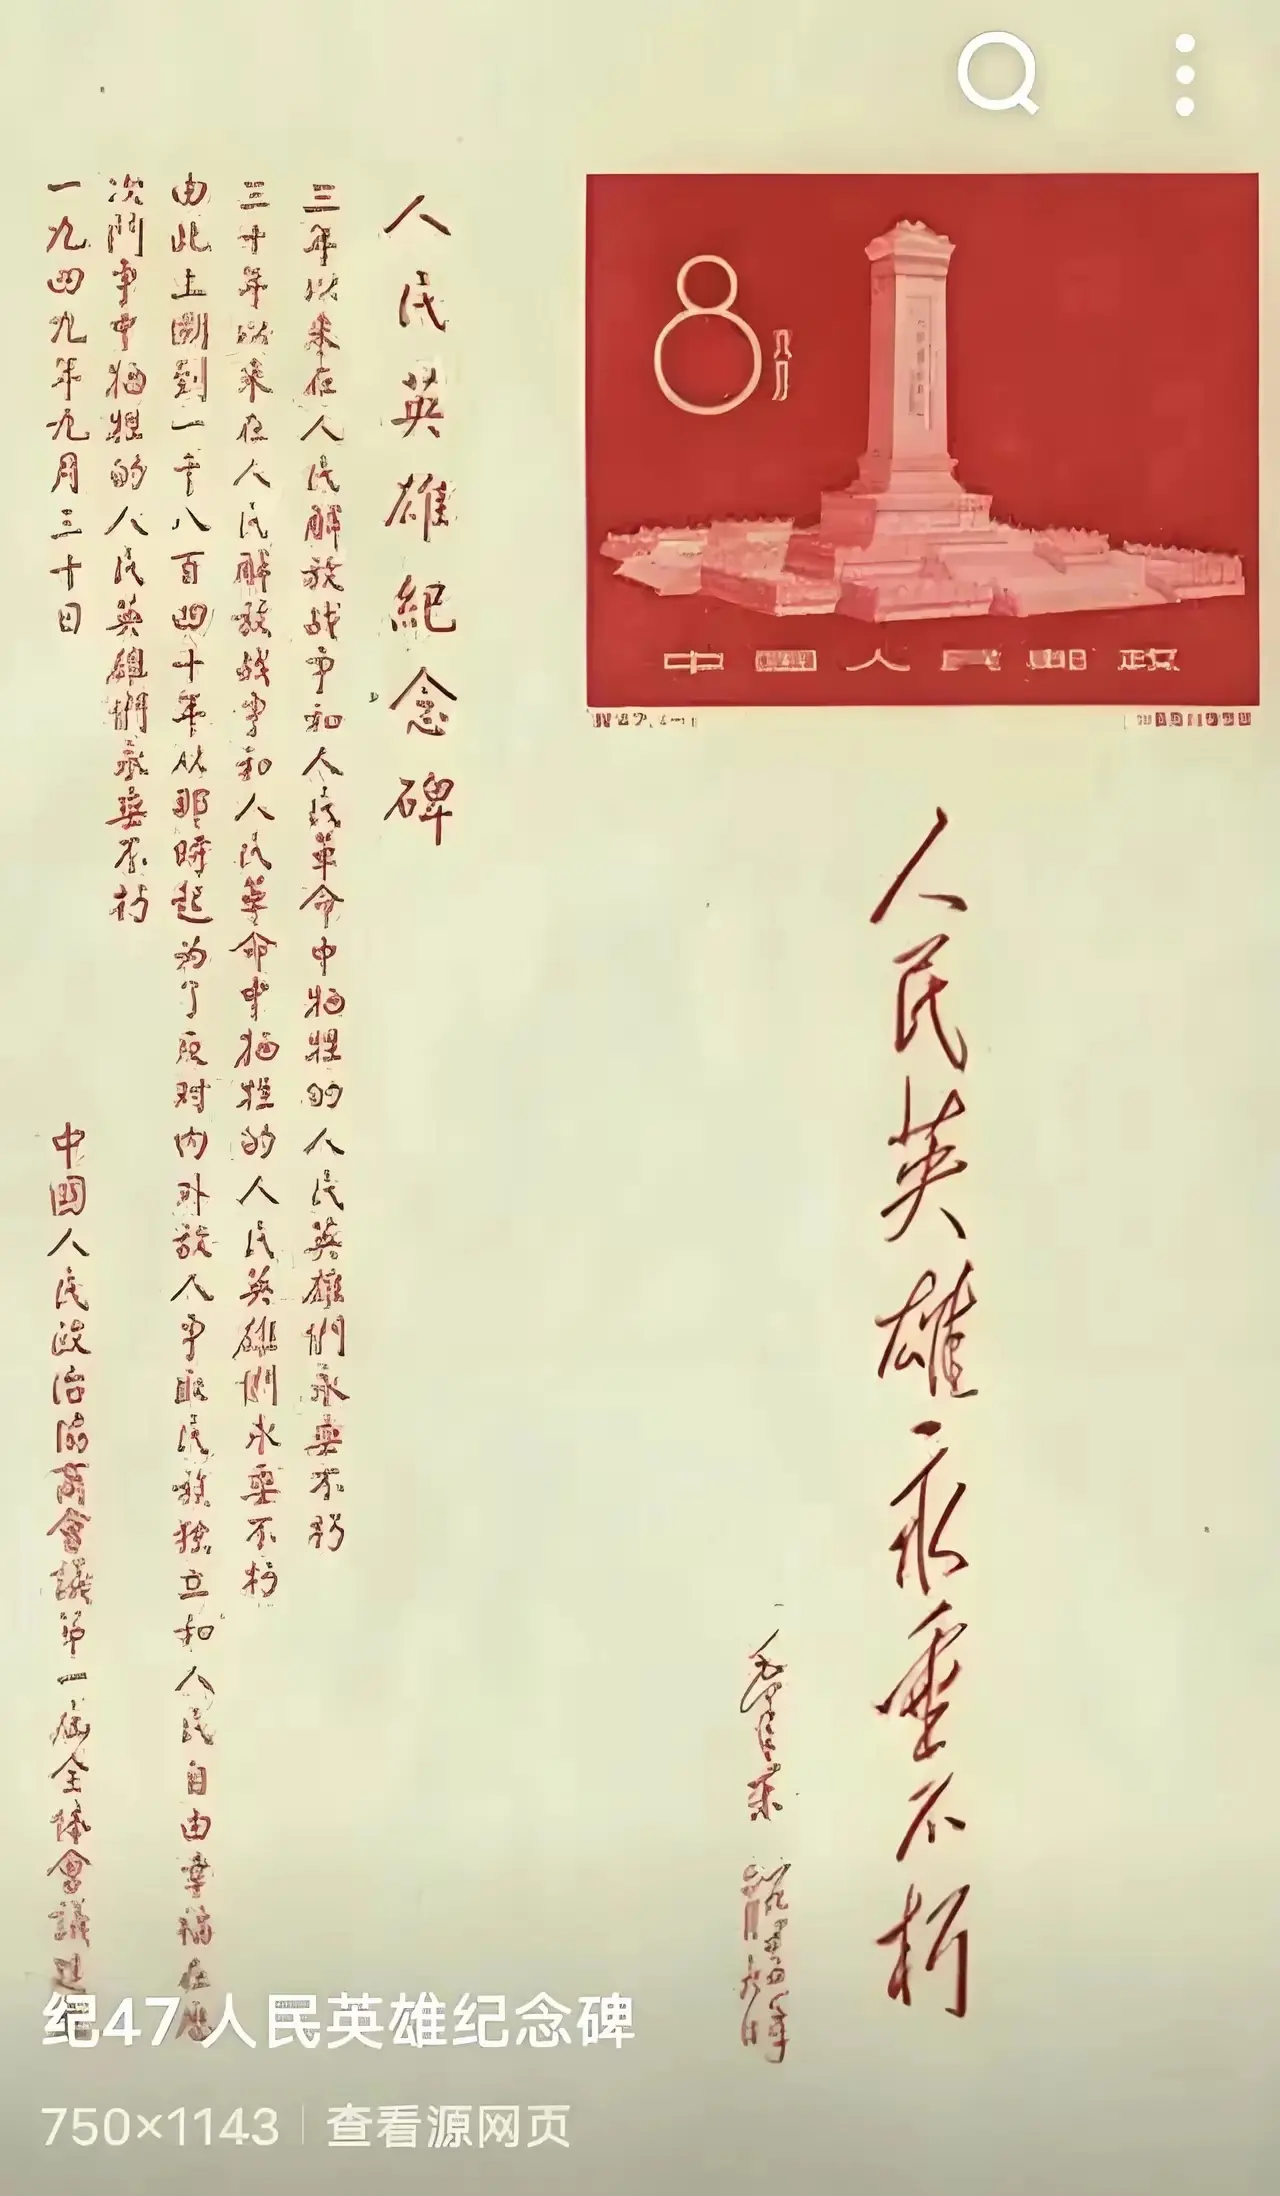 8分
中国人民邮政
人民英雄永垂不朽
毛澤東
人民英雄紀念碑
三年以来在人民解放战争和人民革命中牺牲的人民英雄們永垂不朽
三十年以来在人民解放战争和人民革命中牺牲的人民英雄們永垂不朽
由此上溯到一千八百四十年从那時起为了反对内外敌人争取民族独立和人民自由幸福在历
次鬥争中牺牲的人民英雄們永垂不朽
一九四九年九月三十日
中國人民政治協商會議第一届全体會議建立
纪47 人民英雄纪念碑
750×1143 查看源网页